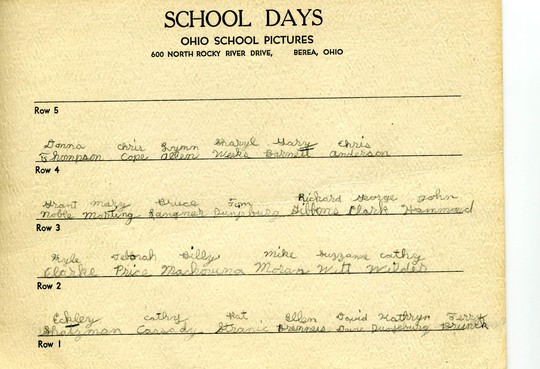 SCHOOL DAYS
OHIO SCHOOL PICTURES
600 NORTH ROCKY RIVER DRIVE, BEREA, OHIO
Row 5
Donna Chris Lynn Sharyl Gary Chris
Thompson Cope Allen Weeks Barnett Anderson
Row 4
Grant Mary Bruce Tom Richard George John
Noble Langner Gibbons Clark Hammond
Row 3
Kyle Deborah Billy Mike Suzzane Cathy
Clarke Price Moran Witt Wilder
Row 2
Eckley Cathy Pat Ellen David Kathryn Terry
Shatzman Cassady Brunck
Row 1